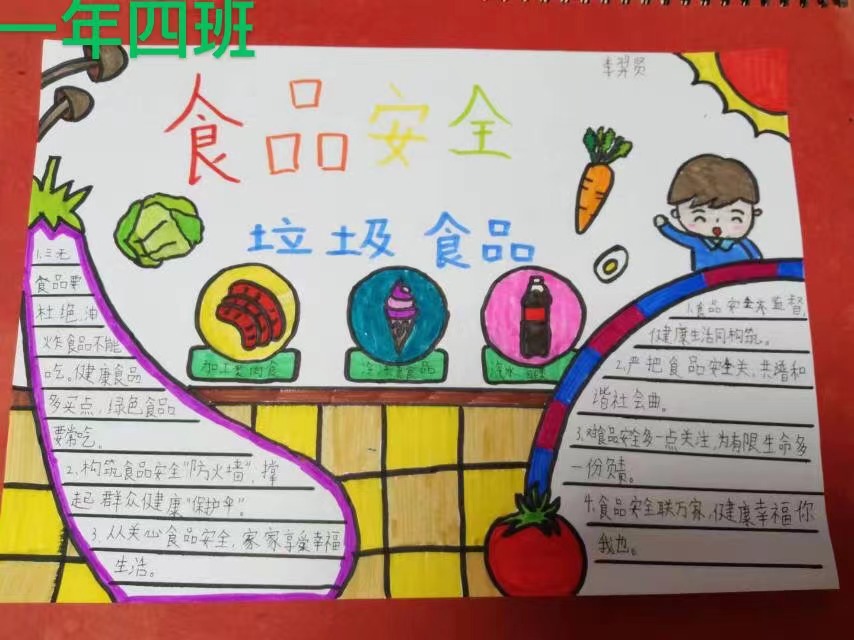 一年四班
李羿贤
食品安全
垃圾食品
加工类肉食
冷冻食品
汽水
1.三无
食品要
杜绝,油
炸食品不能
吃。健康食品
多买点,绿色食品
要常吃。
2.构筑食品安全"防火墙",撑
起群众健康"保护伞"。
3.从关心食品安全,家家享受幸福
生活。
1.食品安全来监督,
健康生活同构筑。
2.严把食品安全关,共谱和
谐社会曲。
3.对食品安全多一点关注,为有限生命多
一份负责。
4.食品安全联万家,健康幸福你
我他。